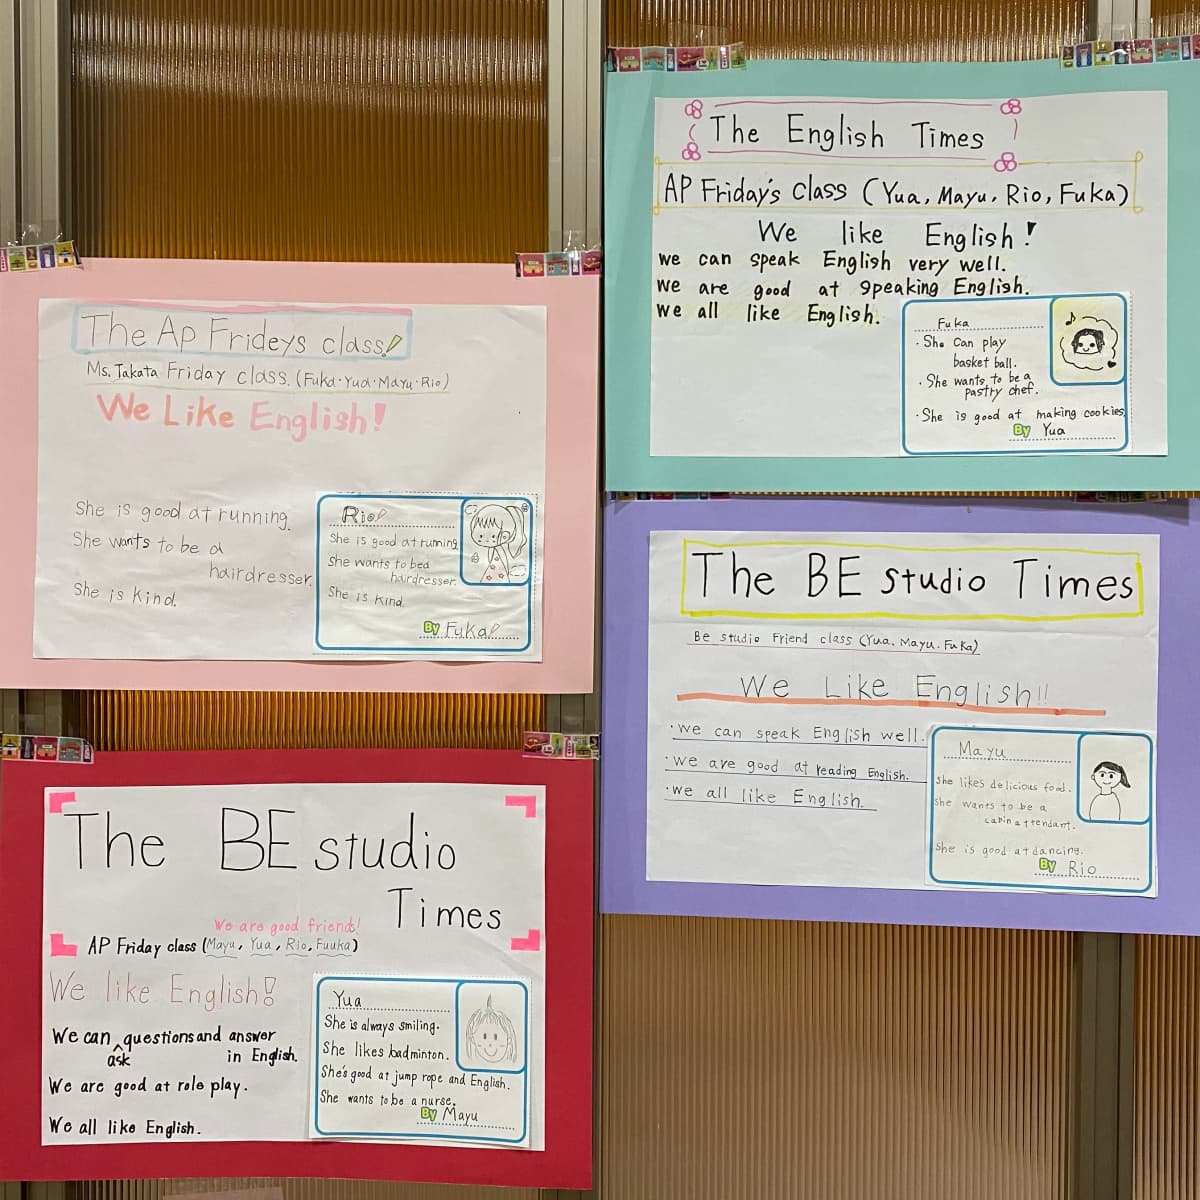 The Ap Frideys class!
Ms. Takata Friday class. (Fuka・Yua・Mayu・Rio)
We Like English!
She is good at running.
She wants to be a
hairdresser.
She is kind.
Rio!
She is good at running
She wants to bea
hairdresser.
She is kind.
By Fuka!
The English Times
AP Friday's class (Yua, Mayu, Rio, Fuka)
We like English!
we can speak English very well.
we are good at speaking English.
we all like English.
Fuka
・She can play
basket ball.
・She wants to be a
pastry chef.
・She is good at making cookies.
By Yua
The BE studio
Times
We are good friends!
AP Friday class (Mayu, Yua, Rio, Fuuka)
We like English!
We can questions and answer
ask in English.
We are good at role play.
We all like English.
Yua
She is always smiling.
She likes badminton.
She's good at jump rope and English.
She wants to be a nurse.
By Mayu
The BE studio Times
Be studio Friend class (Yua. Mayu. Fuka)
We Like English!!
・we can speak English well.
・we are good at reading English.
・we all like English.
Mayu
She likes delicious food.
she wants to be a
cabin attendant.
She is good at dancing.
By Rio